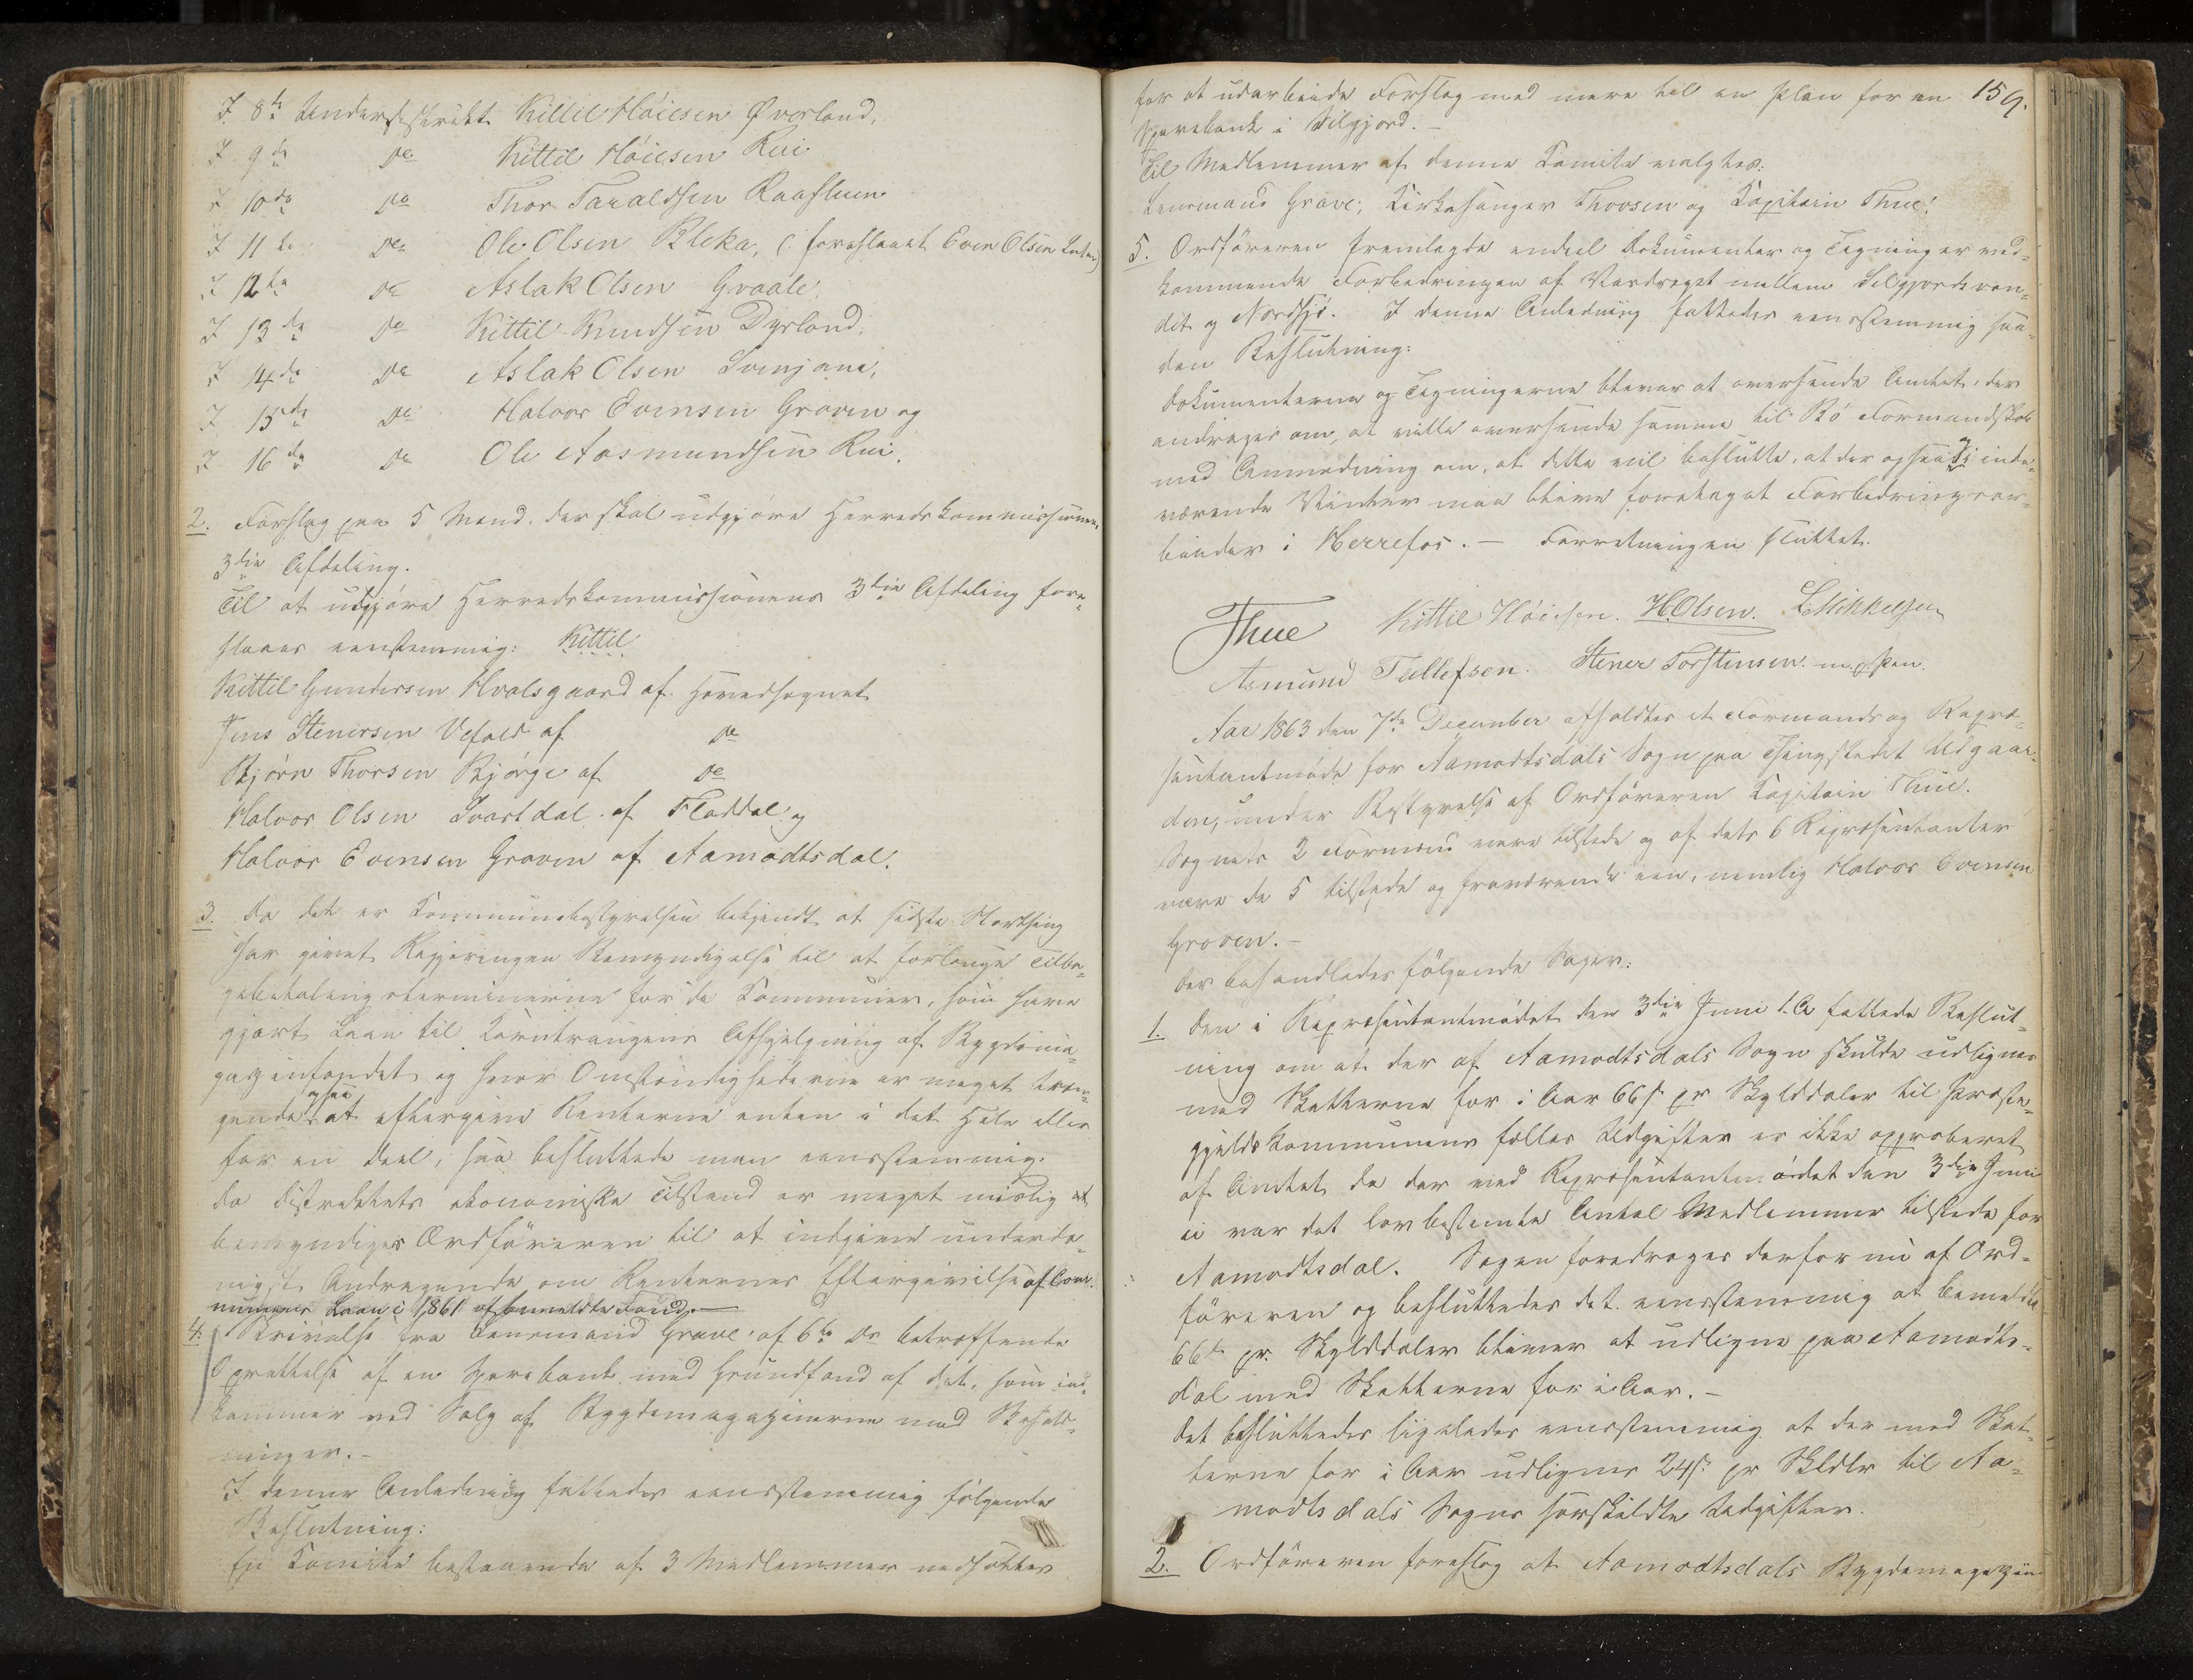 I 8de Underdistrikt Kittil Höiesen Øverland,
I 9de Do Kittil Höiesen Rui
I 10de Do Thor Taraldsen Raasluen
I 11te Do Ole Olsen Bleka, (: foreslaaet Even Olsen
I 12te Do Aslak Olsen Graale,
I 13de Do Kittil Knudsen Dyrland,
I 14de Do Aslak Olsen Svenjane,
I 15de Do Halvor Evensen Groven og
I 16de Do Ole Aasmundsen Rui.
2. Forslag paa 5 Mænd der skal udgjöre Herredskommissionens
3die Afdeling.
Til at udgjöre Herredskommissionens 3die Afdeling fore-
slaaes eenstemmig: Kittil
Kittil Gundersen Hvalsgaard af Hovedsognet
Jens Stenersen Vefald af Do
Björn Thorsen Björge af Do
Halvor Olsen Svartdal af Flatdal og
Halvor Evensen Groven af Aamodtsdal.
3. Da det er Kommunebestyrelsen bekjendt at sidste Storthing
har givet Regjeringen Bemyndigelse til at forlænge Tilba-
gebetalingsterminerne for de Kommuner, som have
gjort Laan til Korntrangens Afhjelpning af Bygdema-
gazinfondet og hvor Omstændighederne er meget træn-
gende ogsaa at eftergive Renterne enten i det Hele eller
for en Deel, saa besluttede man eensstemmig:
da Distriktets økonomiske Tilstand er meget mislig at
bemyndiges Ordföreren til at indgive underda-
nigst Andragende om Renternes Eftergivelse af Com-
munens Laan i 1861 af bemeldte Fond.—
4. Skrivelse fra Lensmand Grave af 6te Ds betræffende
Oprettelse af en Sparebank med Grundfond af det, som ind-
kommer ved Salg af Bygdemagazinerne med Behold-
ninger.-
I denne Anledning fattedes eensstemmig fölgende
Beslutning:
En Komite bestaaende af 3 Medlemmer nedsættes
for at udarbeide Forslag med mere til en Plan for en 159.
Sparebank i Silgjord.-
Til Medlemmer af denne Komite valgtes:
Lensmand Grave, Kirkesanger Thorsen og Kapitain Thue.
5. Ordföreren fremlagde endeel Dokumenter og Tegninger ved-
kommende Forbedringen af Vandraget mellem Silgjordsvan-
det og Nordsjö. I denne Anledning fattedes eensstemmig saa-
den Beslutning:
Dokumenterne og Tegningerne bliver at oversende Amtet, der
andrages om, at ville oversende samme til Bö Formandskab
med Anmodning om, at dette vil beslutte, at der ogsaa i inde-
værende Vinter maa blive foretaget Forbedringsar-
beider i Herrefos.— Forretningen sluttet.
Thue Kittil Höiesen. H.Olsen. L Mikkelsen
Asmund Tullefsen. Stener Torstensen m.p.Pen.
Aar 1863 den 7de December afholdtes et Formands og Repræ-
sentantmöde for Aamodtsdals Sogn paa Thingstedet Udgaar-
den, under Bestyrelse af Ordföreren Kapitain Thue.
Sognets 2 Formænd vare tilstede og af dets 6 Repræsentanter
vare de 5 tilstede og fraværende een, nemlig Halvor Evensen
Groven.-
Der behandledes fölgende Sager:
1. Den i Repræsentantmödet den 3die Juni l.A fattede Beslut-
ning om at der af Aamodtsdals Sogn skulde udlignes
med Skatterne for i Aar 66 s pr Skylddaler til Præste-
gjelds Kommunens fælles Udgifter er ikke approberet
af Amtet da der ved Repræsentantmödet den 3die Juni
ei var det lovbestemte Antal Medlemmer tilstede for
Aamodtsdal. Sagen foredroges derfor nu af Ord-
föreren og besluttedes det eensstemmig at bemeldte
66 s pr. Skylddaler bliver at udligne paa Aamodts-
dal med Skatterne for i Aar.-
Det besluttedes ligeledes eensstemmig at der med Skat-
terne for i Aar udlignes 24 s. pr Skldlr til Aa-
modtsdals Sogns særskildte Udgifter.
2. Ordföreren foreslog at Aamodtsdals Bygdemagazin